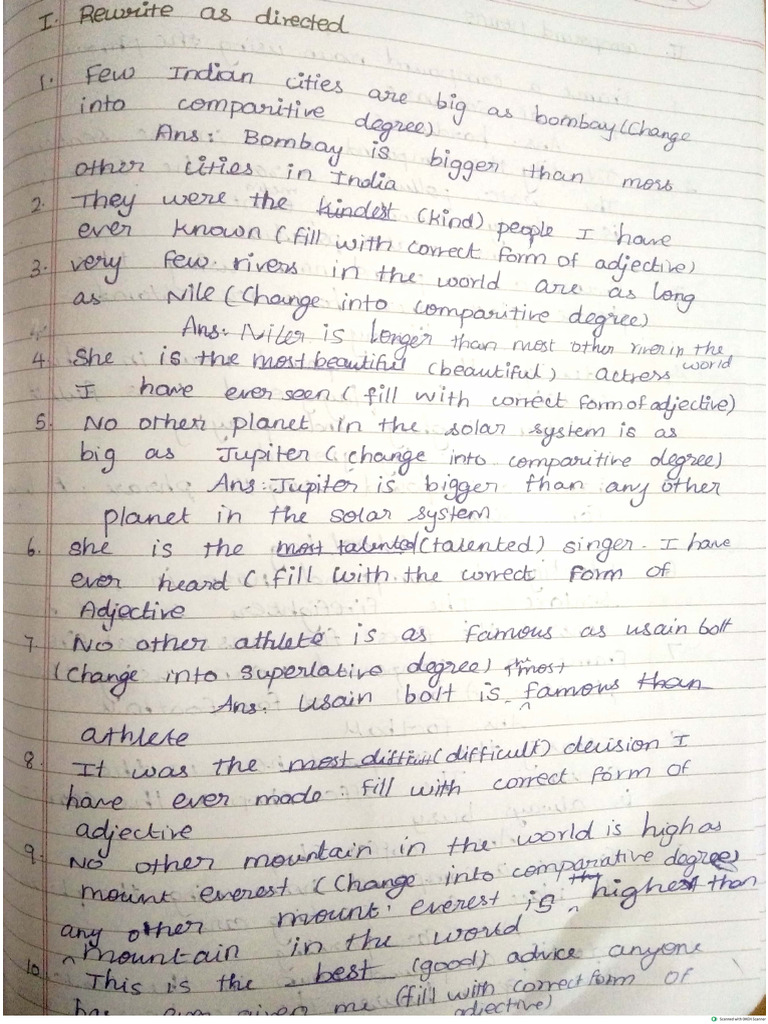 I. Rewrite as directed
1. Few Indian cities are big as bombay (Change
into comparitive degree)
Ans: Bombay is bigger than most
other cities in India
2. They were the kindest (kind) people I have
ever known (fill with correct form of adjective)
3. very few rivers in the world are as long
as Nile (Change into comparitive degree)
Ans: Niler is longer than most other river in the
world
4. She is the most beautiful (beautiful) actress
I have ever seen (fill with correct form of adjective)
5. No other planet in the solar system is as
big as Jupiter (change into comparitive degree)
Ans: Jupiter is bigger than any other
planet in the solar system
6. she is the most talented (talented) singer. I have
ever heard (fill with the correct form of
Adjective
7. No other athlete is as famous as usain bolt
(Change into superlative degree) the most
Ans: usain bolt is famous than
athlete
8. It was the most difficult (difficult) decision I
have ever made fill with correct form of
adjective
9. No other mountain in the world is high as
mount everest (Change into comparative degree)
mount everest is higher than
any other
mountain in the world
10. This is the best (good) advice anyone
has ever given me (fill with correct form of
adjective)
Scanned with OKEN Scanner